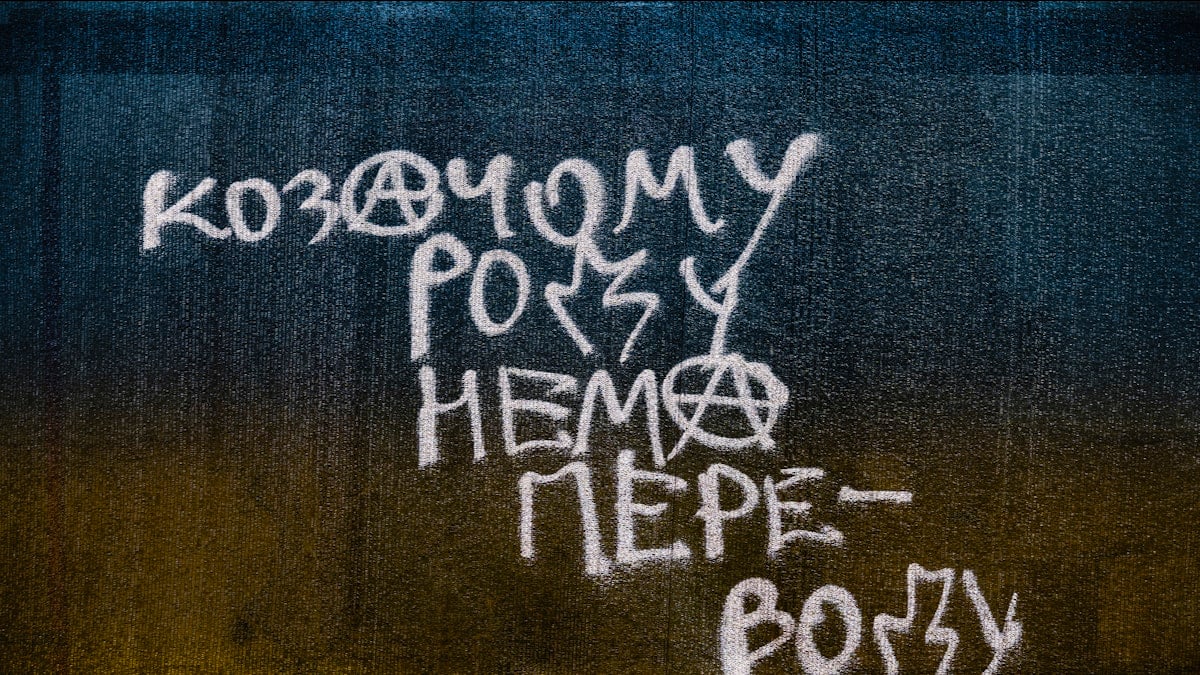 КОЗАЧОМУ
РОДУ
НЕМА
ПЕРЕ-
ВОДУ